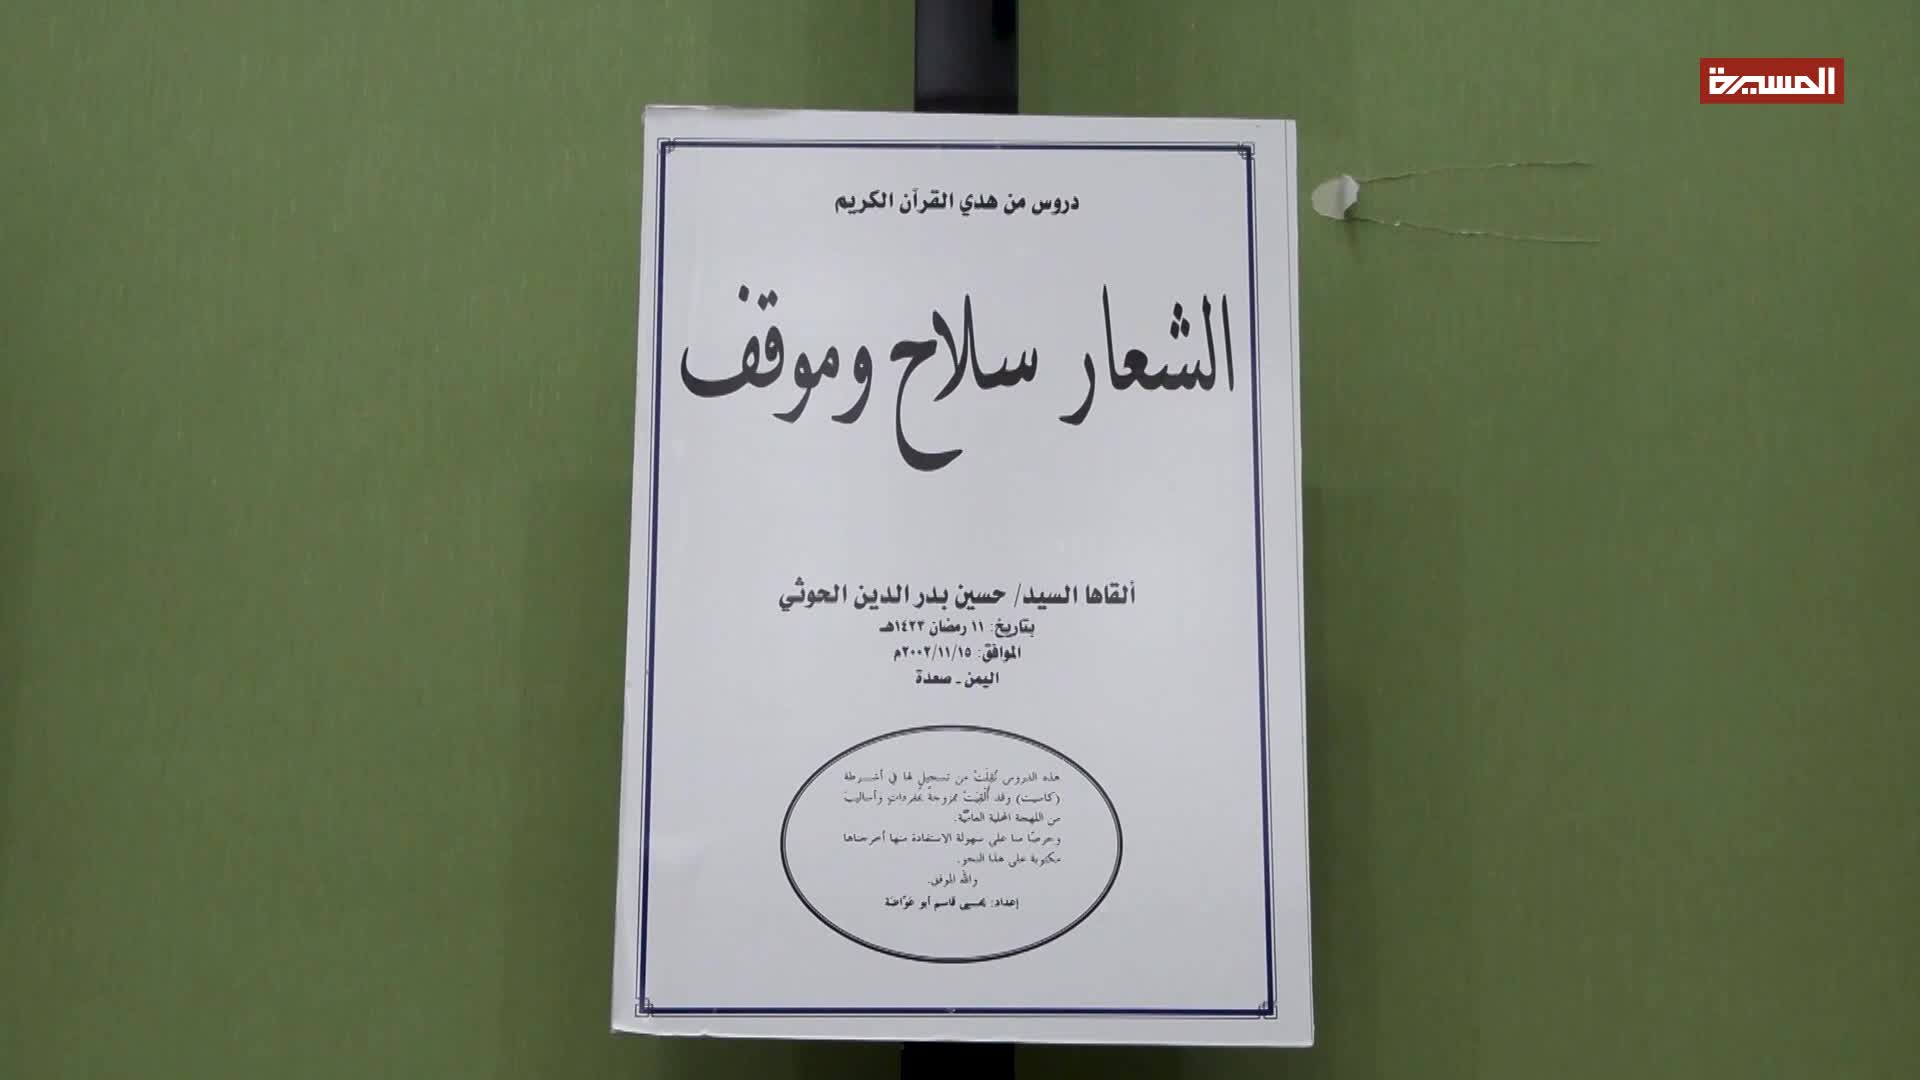 المسيرة
دروس من هدي القرآن الكريم
الشعار سلاح وموقف
ألقاها السيد/ حسين بدر الدين الحوثي
بتاريخ: ١١ رمضان ١٤٢٣هـ
الموافق: ٢٠٠٢/١١/١٥م
اليمن ـ صعدة
هذه الدروس نُقِلَتْ من تسجيلٍ لها في أشـرطة
(كاسيت) وقد أُلْقِيَتْ ممزوجةً بمفرداتٍ وأساليبَ
من اللهجة المحلية العاميَّة.
وحرصًا منا على سهولة الاستفادة منها أخرجناها
مكتوبة على هذا النحو.
والله الموفق.
إعداد: يحيى قاسم أبو عَوَّاضَة